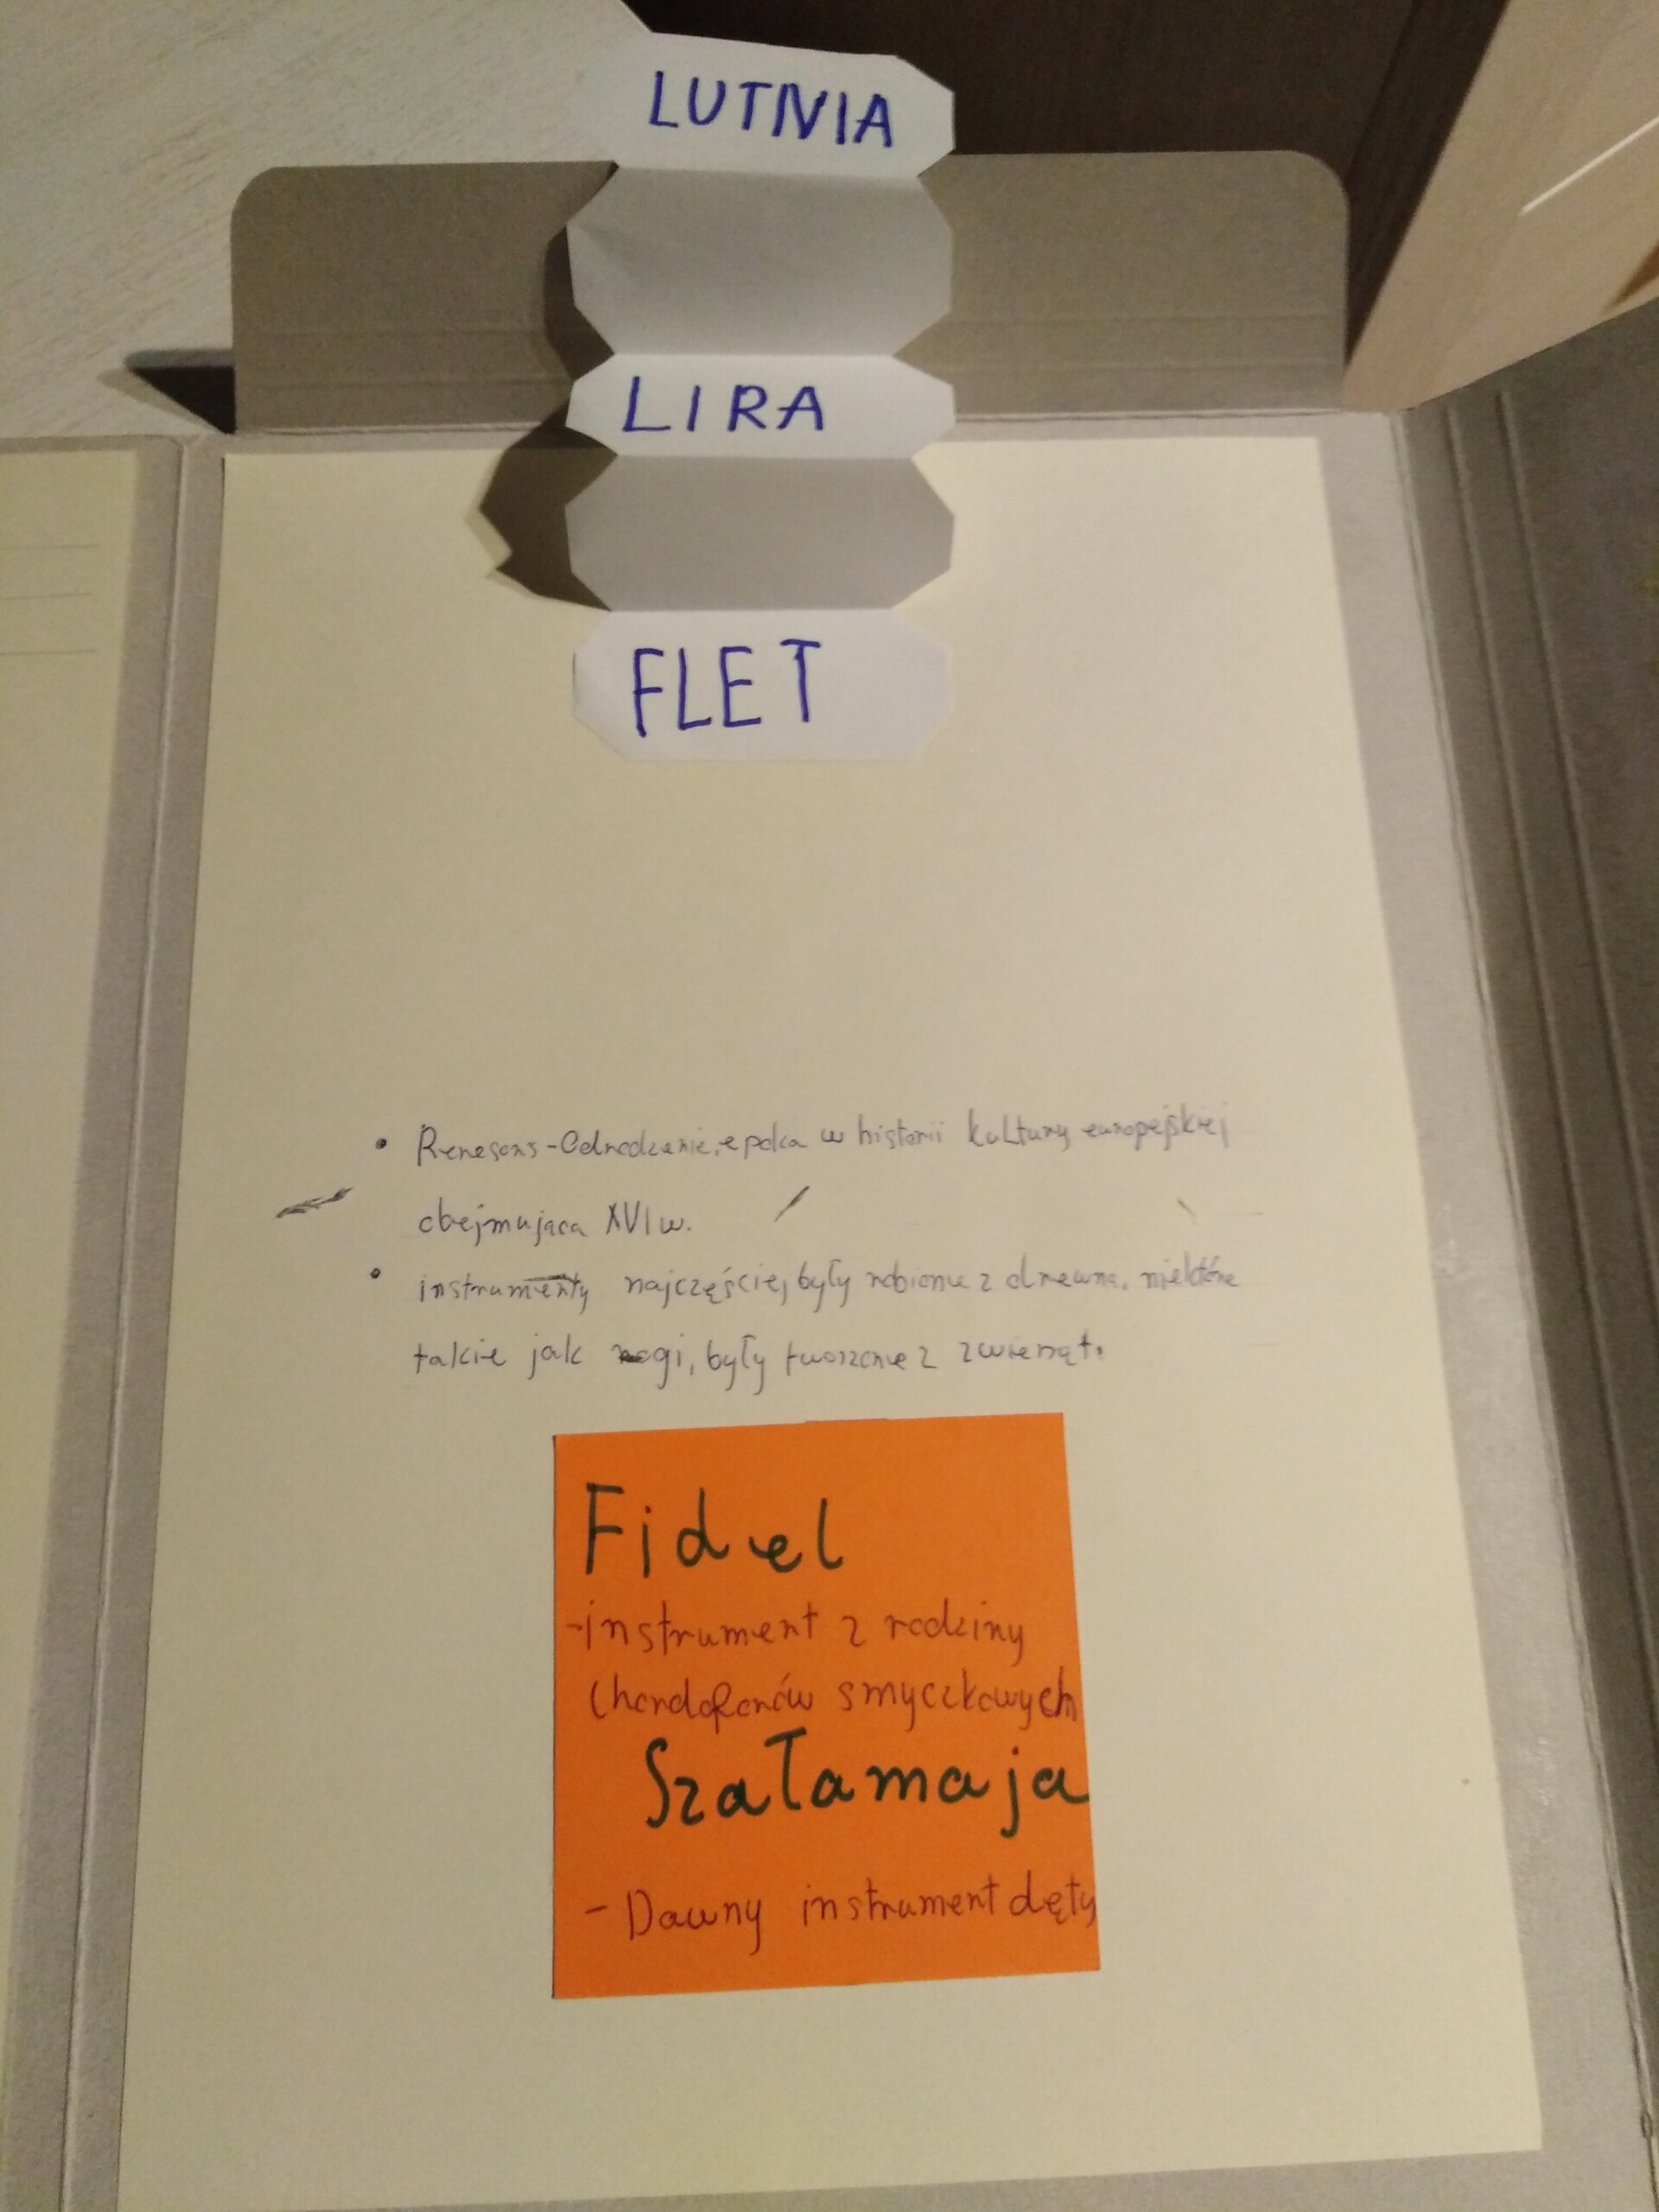 LUTNIA
LIRA
FLET
• Renesans - Odrodzenie, epoka w historii kultury europejskiej
obejmująca XVI w.
• instrumenty najczęściej były robione z drewna, niektóre
takie jak rogi, były tworzone z zwierząt.
Fidel
- instrument z rodziny
Chordofonów smyczkowych
Szałamaja
- Dawny instrument dęty